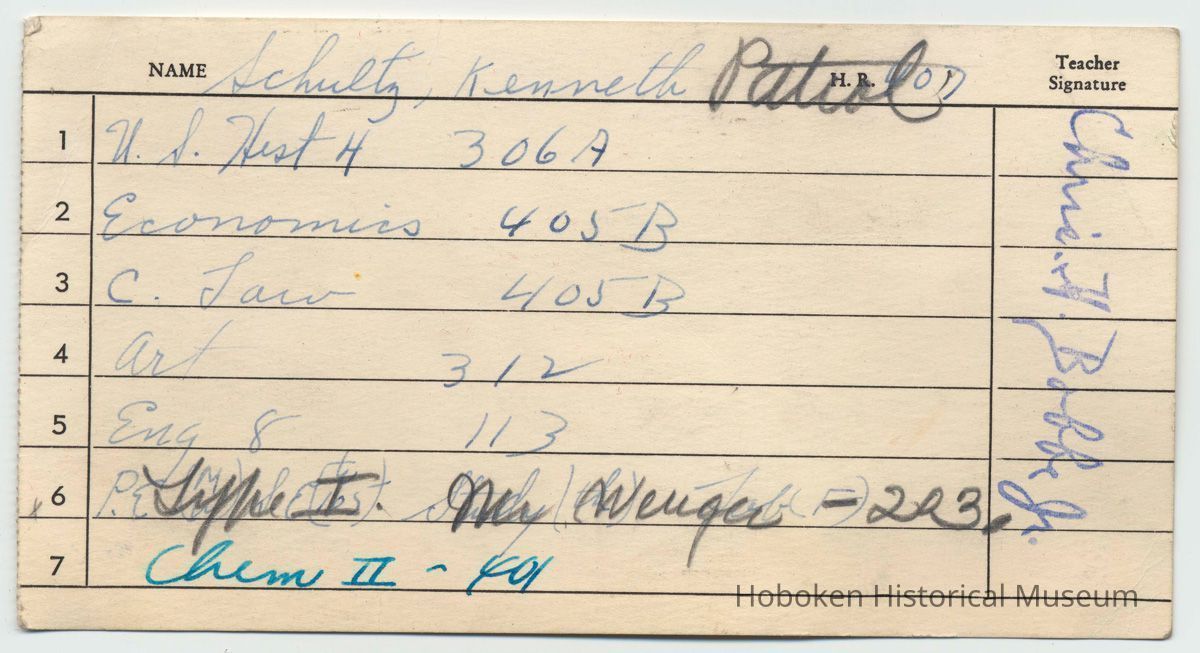 NAME Schultz, Kenneth Patrol H. R. 407 Teacher Signature
1 U. S. Hist 4 306A
2 Economics 405B
3 C. Law 405B
4 Art 312
5 Eng 8 113
6 Type I. Wenger - 223.
7 Chem II - 401
Chris. H. Bobbe Jr.
Hoboken Historical Museum